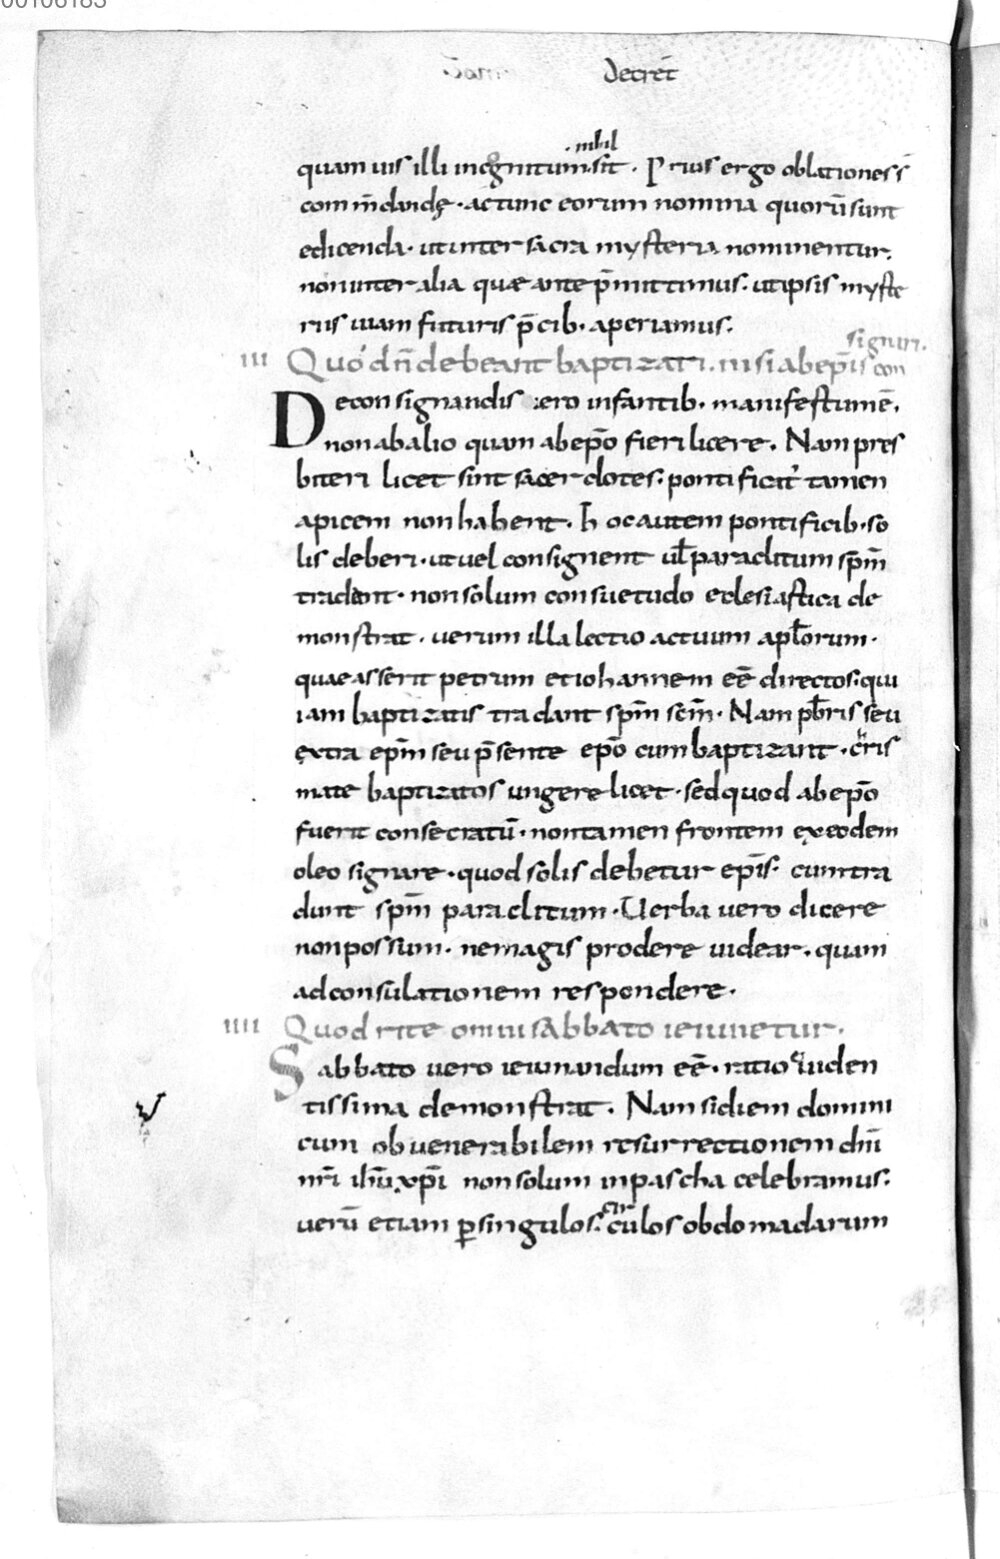 Decret̄
quam uis illi incognitum nihil sit . Prius ergo oblationes s̄
com m̄dandę · ac tunc eorum nomina quorū sunt
edicenda · ut inter sacra mysteria nominentur.
non inter alia quæ ante p̄mittimus · ut ipsis myste
riis uiam futuris p̄cib · aperiamus.
III Quod n̄ debeant baptizati . nisi ab ep̄is con
signari.
De consignandis uero infantib · manifestum ē.
non ab alio quam ab ep̄o fieri licere . Nam pres
biteri licet sint sacerdotes · pontificat' tamen
apicem non habent . hoc autem pontificib · so
lis deberi · ut uel consignent ul̄ paraclitum sp̄m
tradant · non solum consuetudo eclesiastica de
monstrat . uerum illa lectio actuum apl̄orum ·
quae asserit petrum et iohannem eē directos · qui
iam baptizatis tradant sp̄m sc̄m · Nam pb̄ris seu
extra ep̄m seu p̄sente ep̄o cum baptizant · cris
mate baptizatos ungere licet · sed quod ab ep̄o
fuerit consecratū · non tamen frontem ex eodem
oleo signare · quod solis debetur ep̄is · cum tra
dunt sp̄m paraclitum · Uerba uero dicere
non possum · ne magis prodere uidear · quam
ad consulationem respondere .
IIII Quod rite omni sabbato ieiunetur .
Sabbato uero ieiunandum eē · ratio euiden
tissima demonstrat . Nam si diem domini
cum ob uenerabilem resurrectionem dn̄i
nr̄i ih̄u xp̄i non solum in pascha celebramus ·
uerū etiam per singulos · cir cūlos obdomadarum